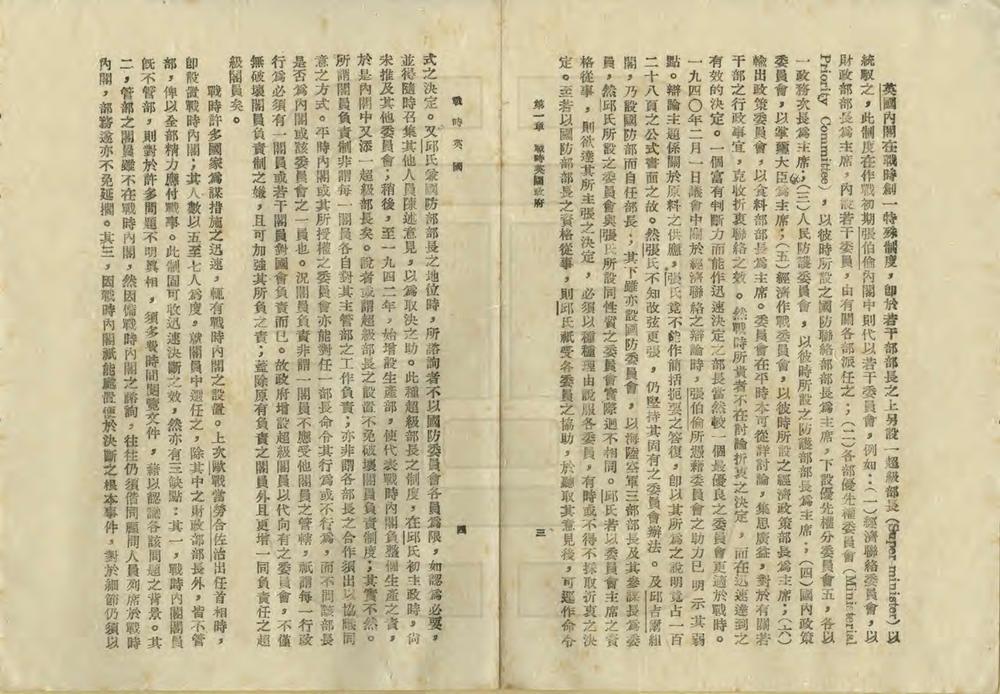 第一章　戰時英國政府
三
英國內閣在戰時創一特殊制度，卽於若干部部長之上另設一超級部長（Super minister）以
統馭之，此制度在作戰初期張伯倫內閣中則代以若干委員會，例如：（一）經濟聯絡委員會，以
財政部部長爲主席，內設若干委員，由有關各部派任之；（二）各部優先權委員會（Ministerial
Priority Committee），以彼時所設之國防聯絡部部長爲主席，下設優先權分委員會五，各以
一政務次長爲主席；（三）人民防護委員會，以彼時所設之防護部部長爲主席；（四）國內政策
委員會，以掌璽大臣爲主席；（五）經濟作戰委員會，以彼時所設之經濟政策部長爲主席；（六）
輸出政策委員會，以食料部部長爲主席。委員會在平時本可從詳討論，集思廣益，對於有關若
干部之行政事宜，克收折衷聯絡之效。然戰時所貴者不在討論折衷之決定，而在迅速達到之
有效的決定。一個富有判斷力而能作迅速決定之部長當然較一個最優良之委員會更適於戰時。
一九四〇年二月一日議會中關於經濟聯絡之辯論時，張伯倫所憑藉委員會之助力已明示其弱
點。辯論主題係關於原料之供應，張氏竟不能作簡括扼要之答復，卽以其所爲之說明竟占一百
二十八頁之公式書面之故。然張氏不知改弦更張，仍堅持其固有之委員會辦法。及邱吉爾組
閣，乃設國防部而自任部長；其下雖亦設國防委員會，以海陸空軍三部部長及其參謀長爲委
員，然邱氏所設之委員會與張氏所設同性質之委員會實際迥不相同。邱氏若以委員長之資
格從事，則欲達其所主張之決定，必須以種種理由說服各委員，有時或不得不採取折衷之決
定。至若以國防部部長之資格從事，則邱氏祇受各委員之協助，於聽取其意見後，可逕作命令
戰時英國
四
式之決定。又邱氏兼國防部部長之地位時，所諮詢者不以國防委員會各員爲限，如認爲必要，
並得隨時召集其他人員陳述意見，以爲取決之助。此種超級部長之制度，在邱氏初主政時，尚
未推及其他委員會；稍後，至一九四二年，始增設生產部，使代表戰時內閣負整個生產之責，
於是內閣中又添一超級部長矣。說者或謂超級部長之設置不免破壞閣員負責制度；其實不然。
所謂閣員負責制非謂每一閣員各自對其主管部之工作負責；亦非謂各部長之合作須出以協議同
意之方式。平時內閣或其所授權之委員會亦能對任一部長命令其行爲或不行爲，而不問該部長
是否爲內閣或該委員會之一員也。況閣員負責非謂一閣員不應受他閣員之管轄，祇謂每一行政
行爲必須有一閣員或若干閣員對國會負責而已。故政府增設超級閣員以代向有之委員會，不僅
無破壞閣員負責制之嫌，且可加強其所負之責；蓋除原有負責之閣員外且更增一同負責任之超
級閣員矣。
戰時許多國家爲謀措施之迅速，輒有戰時內閣之設置。上次歐戰當勞合佐治出任首相時，
卽設置戰時內閣；其人數以五至七人爲度，就閣員中選任之，除其中之財政部部長外，皆不管
部，俾以全部精力應付戰事。此制固可收迅速決斷之效，然亦有三缺點：其一，戰時內閣閣員
旣不管部，則對於許多問題不明眞相，須多費時間閱覽文件，藉以認識各該問題之背景。其
二，管部之閣員雖不在戰時內閣，然因備戰時內閣之諮詢，往往仍須偕同顧問人員列席於戰時
內閣，部務遂亦不免延擱。其三，因戰時內閣祇能處置便於決斷之根本事件，對於細節仍須以